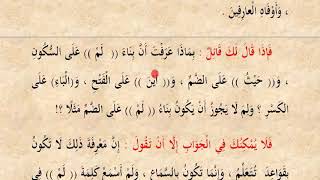 ، وَأَوْفَاهُ الْعَارِفِينَ .
فَإِذَا قَالَ لَكَ قَائِلٌ : بِمَاذَا عَرَفْتَ أَنَّ بِنَاءَ (( لَمْ )) عَلَى السُّكُونِ
، وَ(( حَيْثُ )) عَلَى الضَّمِّ ، وَ(( أَيْنَ )) عَلَى الْفَتْحِ ، وَ(الْبَاءِ) عَلَى
الْكَسْرِ ؟ وَلِمَ لَا يَجُوزُ أَنْ يَكُونَ بِنَاءُ (( لَمْ )) عَلَى الضَّمِّ مَثَلًا ؟!
فَلَا يُمْكِنُكَ فِي الْجَوَابِ إِلَّا أَنْ تَقُولَ : إِنَّ مَعْرِفَةَ ذَلِكَ لَا تَكُونُ
بِقَوَاعِدَ تُتَعَلَّمُ ، وَإِنَّمَا تَكُونُ بِالسَّمَاعِ ، وَلَمْ أَسْمَعْ كَلِمَةَ (( لَمْ )) فِي